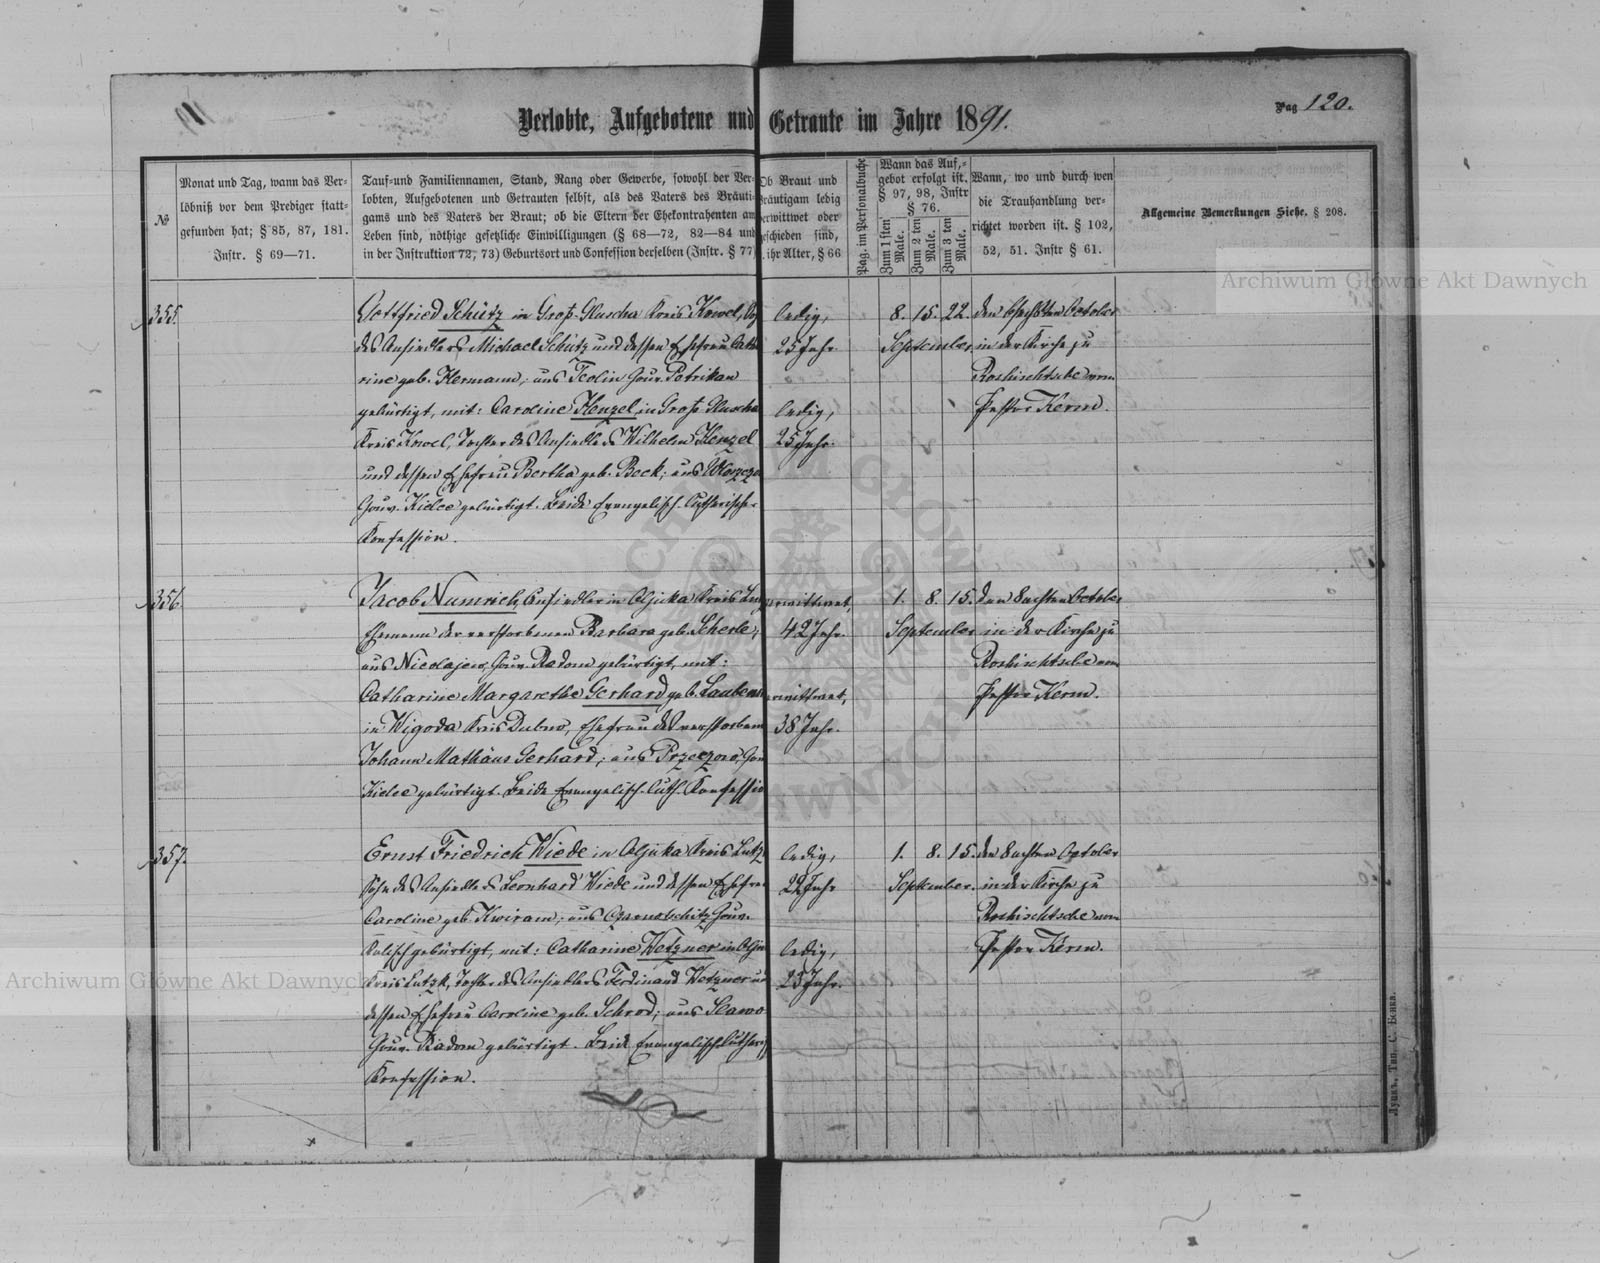 Verlobte, Aufgebotene und Getraute im Jahre 1891.
Pag 120.
№
Monat und Tag, wann das Ver-
löbniß vor dem Prediger statt-
gefunden hat; § 85, 87, 181.
Instr. § 69—71.
Tauf-und Familiennamen, Stand, Rang oder Gewerbe, sowohl der Ver-
lobten, Aufgebotenen und Getrauten selbst, als des Vaters des Bräuti-
gams und des Vaters der Braut; ob die Eltern der Ehekontrahenten am
Leben sind, nöthige gesetzliche Einwilligungen (§ 68—72, 82—84 und
in der Instruktion 72, 73) Geburtsort und Confession derselben (Instr. § 77)
Ob Braut und
Bräutigam ledig
verwittwet oder
geschieden sind,
ihr Alter, § 66
Pag. im Personalbuche
Wann das Auf-
gebot erfolgt ist.
§ 97, 98, Instr
§ 76.
Zum 1 sten Male.
Zum 2 ten Male.
Zum 3 ten Male.
Wann, wo und durch wen
die Trauhandlung ver-
richtet worden ist. § 102,
52, 51. Instr § 61.
Allgemeine Bemerkungen Siehe, § 208.
355.
Gottfried Schütz in Groß-Gluscha Kreis Kowel,
des Ansiedlers Michael Schütz und dessen Ehefrau Catha
rine geb. Hermann; aus Teolin Gouv. Petrikau
gebürtigt, mit: Caroline Henzel in Groß-Gluscha
Kreis Kowel, Tochter des Ansiedlers Wilhelm Henzel
und dessen Ehefrau Bertha geb. Beck; aus
Gouv. Kielce gebürtigt. Beide Evangelisch-Lutherischer
Konfession.
ledig,
25 Jahr
ledig,
25 Jahr.
8. 15. 22.
September
den Sechsten October
in der Kirche zu
Roshischtsche vom
Pastor Kerm.
356.
Jacob Numrich, Ansiedler in Olyka Kreis
Ehemann der verstorbenen Barbara geb. Scherle;
aus Nicolajew, Gouv. Radom gebürtigt, mit:
Catharine Margarethe Gerhard geb.
in Wigoda Kreis Dubno, Ehefrau des verstorbenen
Johann Mathäus Gerhard; aus Przeczow, Gouv
Kielce gebürtigt. Beide Evangelisch-Luth. Konfessio
verwittwet,
42 Jahr.
verwittwet,
38 Jahr.
1. 8. 15.
September
den 8achten October
in der Kirche zu
Roshischtsche vom
Pastor Kerm.
357.
Ernst Friedrich Wiede in Olyka Kreis Lutz
Sohn des Ansiedlers Leonhard Wiede und dessen Ehefrau
Caroline geb. Kwiram; aus Gouv.
Kalisch gebürtigt, mit: Catharine Wetzner in
Kreis Lutzk, Tochter des Ansiedlers Ferdinand Wetzner und
dessen Ehefrau Caroline geb. Schrod; aus Slawo
Gouv. Radom gebürtigt. Beide Evangelisch Lutherisch
Konfession.
ledig,
22 Jahr
ledig,
23 Jahr.
1. 8. 15.
September.
den 8achten October
in der Kirche zu
Roshischtsche vom
Pastor Kerm.
Луцкъ, Тип. С. Бенка.
Archiwum Główne Akt Dawnych
Archiwum Główne Akt Dawnych